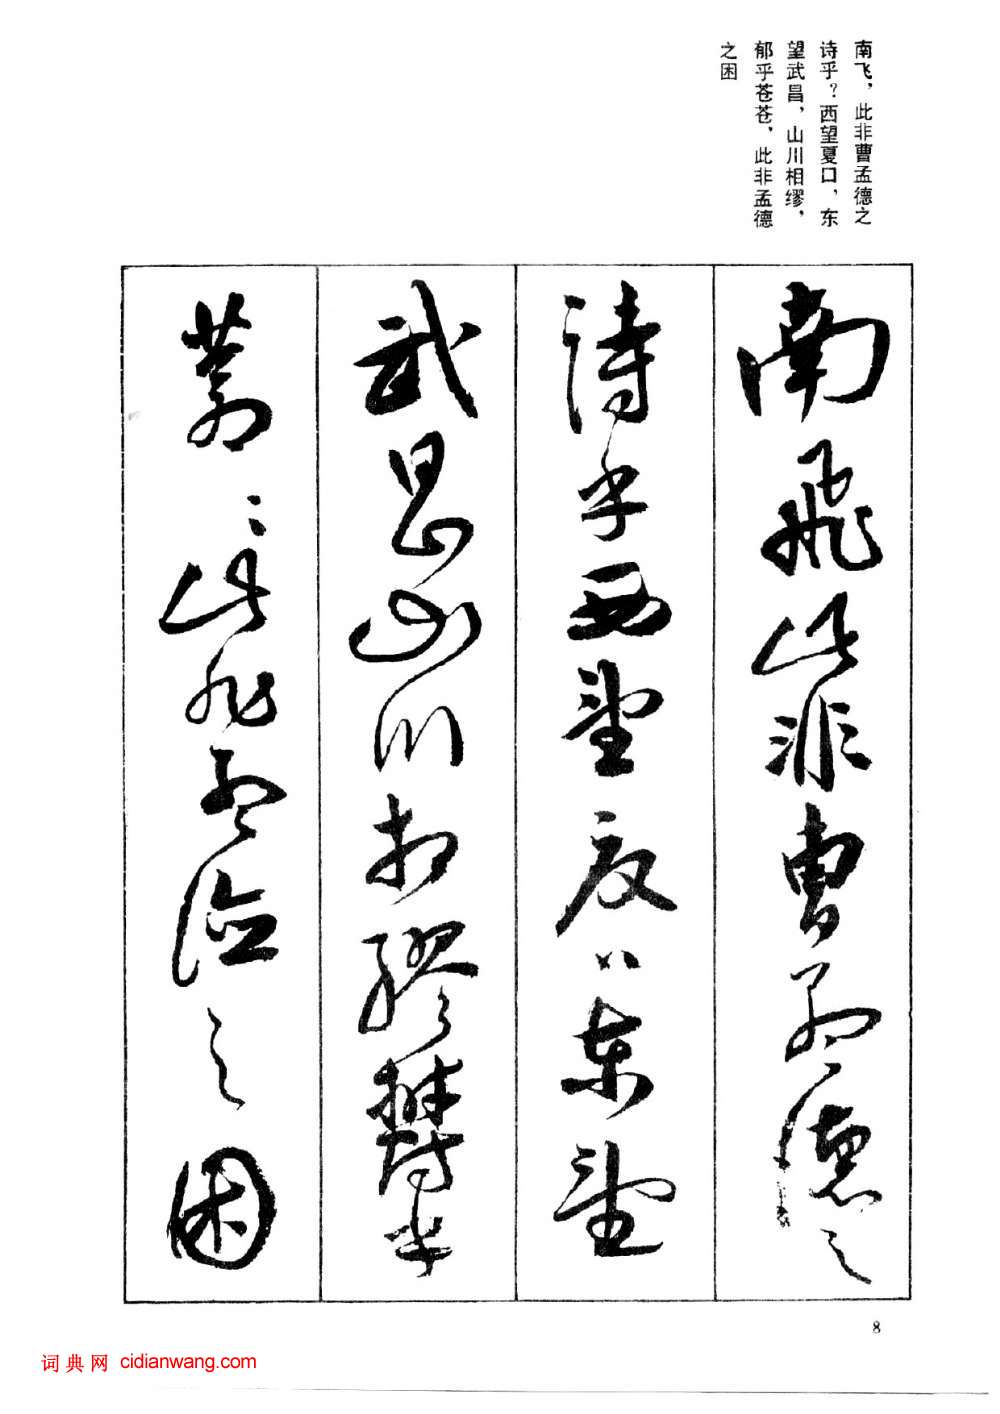 南飞，此非曹孟德之
诗乎？西望夏口，东
望武昌，山川相缪，
郁乎苍苍，此非孟德
之困
南飛此非曹孟德之
诗乎西望夏口東望
武昌山川相缪鬱乎
蒼〻此非孟德之困
8
词典网 cidianwang.com